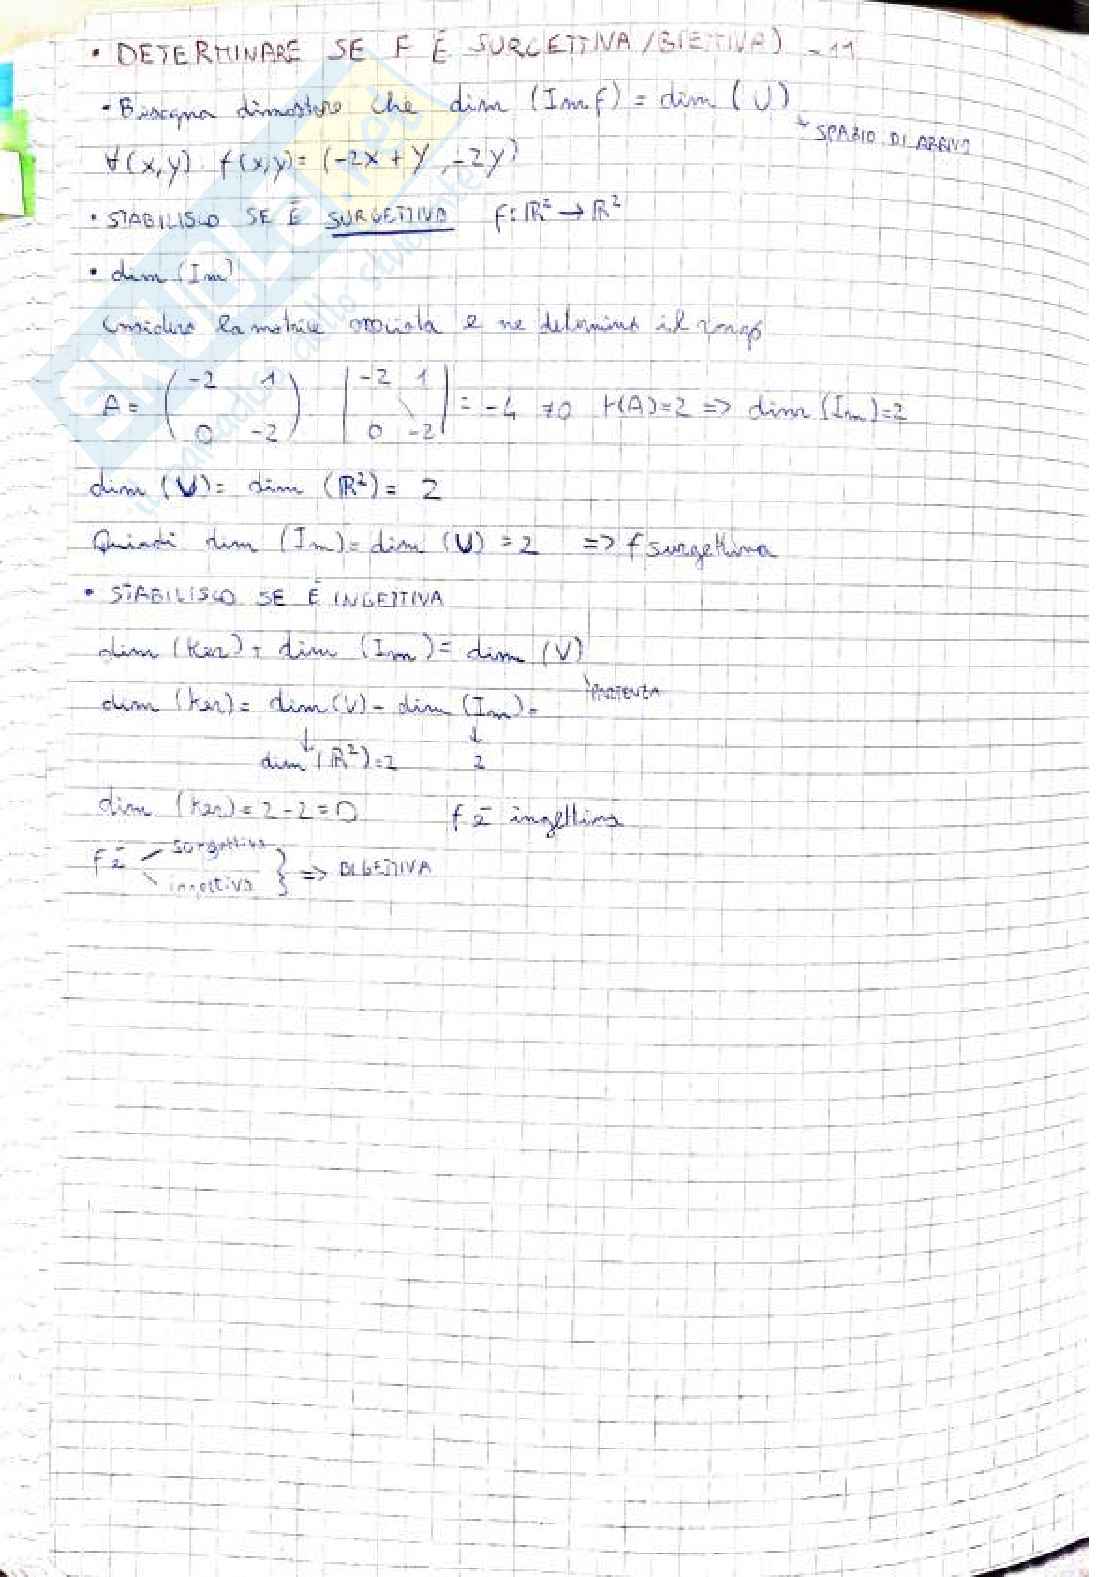 • DETERMINARE SE F È SURGETTIVA/BIETTIVA) -11
• Bisogna dimostrare che dim (Im f) = dim (U)
SPAZIO DI ARRIVO
∀(x,y) f(x,y) = (-2x + y, -2y)
• STABILISCO SE È SURGETTIVA f: ℝ² → ℝ²
• dim (Im)
Considero la matrice associata e ne determino il rango
A = (-2 1) |-2 1| = -4 ≠0 r(A)=2 => dim (Im)=2
(0 -2) |0 -2|
dim (U) = dim (ℝ²) = 2
Quindi dim (Im) = dim (U) = 2 => f surgettiva
• STABILISCO SE È INGETTIVA
dim (Ker) + dim (Im) = dim (V)
PARTENZA
dim (Ker) = dim (V) - dim (Im) =
↓ ↓
dim (ℝ²)=2 2
dim (Ker) = 2-2 = 0 f è ingettiva
f è surgettiva
ingettiva } => BIGETTIVA
SKUOLA.net
impara dallo studente